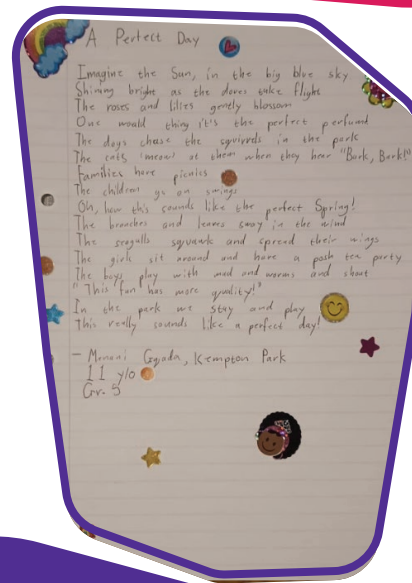 A Perfect Day
Imagine the Sun, in the big blue sky
Shining bright as the doves take flight
The roses and lilies gently blossom
One would thing it's the perfect perfumd
The dogs chase the squirrels in the park
The cats 'meow' at them when they hear "Bark, Bark!"
Families have picnics
The children go on swings
Oh, how this sounds like the perfect Spring!
The branches and leaves sway in the wind
The seagulls squawk and spread their wings
The girls sit around and have a posh tea party
The boys play with mud and worms and shout
"This fun has more quality!"
In the park we stay and play
This really sounds like a perfect day!
- Kempton Park
11 y/o
Gr. 5